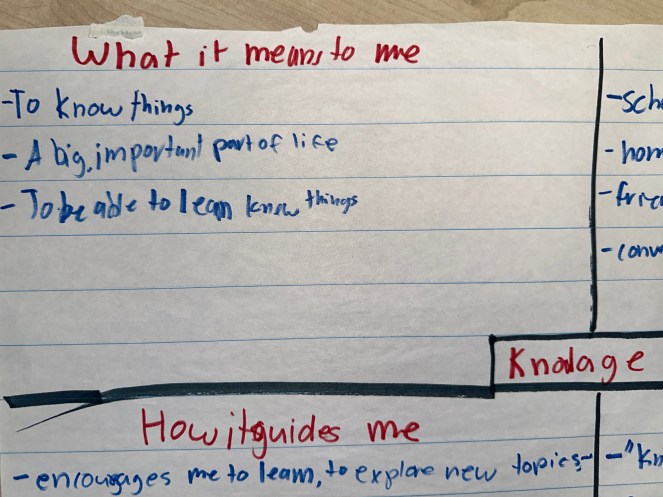 What it means to me
-To know things
- A big, important part of life
- To be able to learn know things
-scho
- hom
-frie
-conv
Knowlage
How it guides me
- encourages me to learn, to explore new topics-
-"Kn